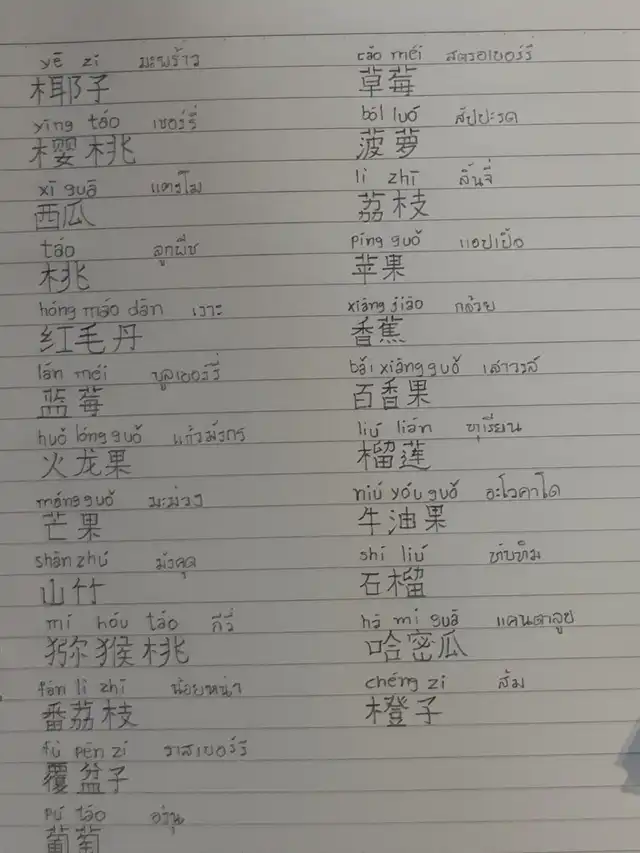 yē zi มะพร้าว
椰子
yīng táo เชอร์รี่
樱桃
xī guā แตงโม
西瓜
táo ลูกพีช
桃
hóng máo dān เงาะ
红毛丹
lán méi บูลเบอร์รี่
蓝莓
huǒ lóng guǒ แก้วมังกร
火龙果
máng guǒ มะม่วง
芒果
shān zhú มังคุด
山竹
mí hóu táo กีวี่
猕猴桃
fān lì zhī น้อยหน่า
番荔枝
fù pén zi ราสเบอร์รี่
覆盆子
pú táo องุ่น
葡萄
cǎo méi สตรอเบอร์รี่
草莓
bōl luó สัปปะรด
菠萝
lì zhī ลิ้นจี่
荔枝
píng guǒ แอปเปิ้ล
苹果
xiāng jiāo กล้วย
香蕉
bǎi xiāng guǒ เสาวรส
百香果
liú lián ทุเรียน
榴莲
niú yóu guǒ อะโวคาโด
牛油果
shí liú ทับทิม
石榴
hā mì guā แคนตาลูป
哈密瓜
chéng zi ส้ม
橙子